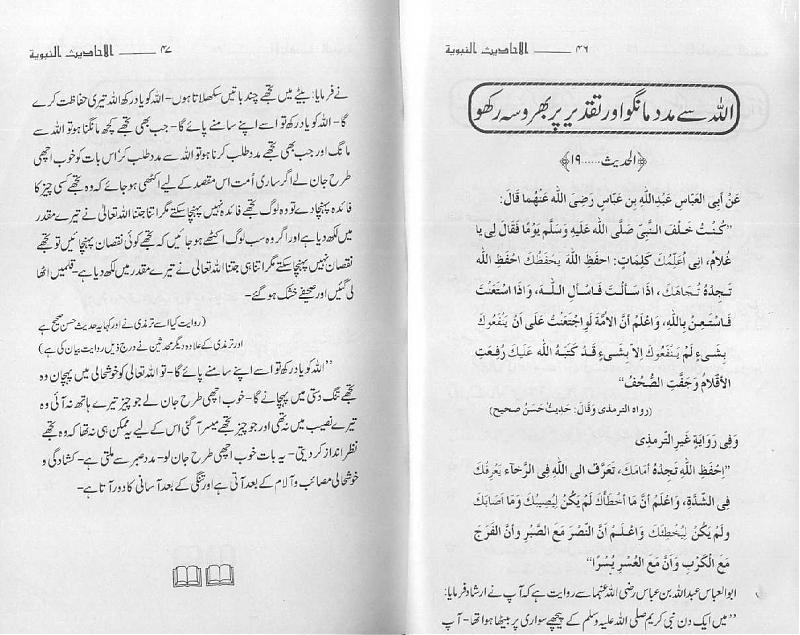 ۴۶ ــــــ الاحادیث النبویة
اللہ سے مدد مانگو اور تقدیر پر بھروسہ رکھو
﴿الحدیث......۱۹﴾
عَنْ أبِی العَبَاسِ عَبدِاللّٰهِ بنِ عَبَّاسٍ رَضِیَ اللّٰه عَنْهُمَا قَالَ:
”کُنْتُ خَلْفَ النَّبِیِّ صَلَّی اللّٰهُ عَلَیْهِ وَسَلَّم یَوْمًا فَقَالَ لِی یا
غُلَامُ، اِنِی أُعَلِّمُكَ کَلِمَاتٍ: احفَظِ اللّٰهَ یَحْفَظْكَ احْفَظِ اللّٰهَ
تَجِدْهُ تُجَاهَكَ، اذَا سَألْتَ فَاسْألِ اللّٰهَ، وَاذَا اسْتَعَنْتَ
فَاسْتَعِنْ بِاللّٰهِ، وَاعْلَمْ أنَّ الأُمَّةَ لَوِاجْتَمَعَتْ عَلَی أنْ یَنْفَعُوكَ
بِشَیءٍ لَمْ یَنْفَعُوكَ اِلَّا بِشَیءٍ قَدْ کَتَبَهُ اللّٰهُ عَلَیكَ رُفِعَتِ
الأقْلَامُ وَجَفَّتِ الصُّحُفُ“
(رواہ الترمذی وَقَالَ: حَدِیثٌ حَسَنٌ صحیح)
وَفِی رَوَایَةِ غَیرِ التِّرمذِی
”اِحْفَظِ اللّٰهَ تَجِدْهُ أمَامَكَ، تَعَرَّفْ الی اللّٰهِ فِی الرَّخَآءِ یَعْرِفْكَ
فِی الشِّدَّةِ، وَاعْلَمْ أنَّ مَا أخْطَأكَ لَمْ یَکُنْ لِیُصِیْبَكَ وَمَا أصَابَكَ
ولَمْ یَکُنْ لِیُخْطِئَكَ وَاعْلَمْ أنَّ النَّصْرَ مَعَ الصَّبْرِ وأنَّ الفَرَجَ
مَعَ الْکَرْبِ وَأنَّ مَعَ العُسْرِ یُسْرًا“
ابوالعباس عبداللہ بن عباس رضی اللہ عنہما سے روایت ہے کہ آپ نے ارشاد فرمایا:
”میں ایک دن نبی کریم صلی اللہ علیہ وسلم کے پیچھے سواری پر بیٹھا ہوا تھا۔ آپ
۴۷ ــــــ الاحادیث النبویة
نے فرمایا: بیٹے میں تجھے چند باتیں سکھلاتا ہوں۔ اللہ کو یاد رکھ اللہ تیری حفاظت کرے
گا۔ اللہ کو یاد رکھ تو اسے اپنے سامنے پائے گا۔ جب بھی تجھے کچھ مانگنا ہو تو اللہ سے
مانگ اور جب بھی تجھے مدد طلب کرنا ہو تو اللہ سے مدد طلب کر‘ اس بات کو خوب اچھی
طرح جان لے اگر ساری اُمت اس مقصد کے لیے اکٹھی ہو جائے کہ وہ تجھے کسی چیز کا
فائدہ پہنچا دے تو وہ لوگ تجھے فائدہ نہیں پہنچا سکتے مگر اتنا جتنا اللہ تعالیٰ نے تیرے مقدر
میں لکھ دیا ہے اور اگر وہ سب لوگ اکٹھے ہو جائیں کہ تجھے کوئی نقصان پہنچائیں تو تجھے
نقصان نہیں پہنچا سکتے مگر اتنا ہی جتنا اللہ تعالی نے تیرے مقدر میں لکھ دیا ہے۔ قلمیں اٹھا
لی گئیں اور صحیفے خشک ہو گئے۔
(روایت کیا اسے ترمذی نے اور کہا یہ حدیث حسن صحیح ہے
اور ترمذی کے علاوہ دیگر محدثین نے درج ذیل روایت بیان کی ہے)
”اللہ کو یاد رکھ تو اسے اپنے سامنے پائے گا۔ تو اللہ تعالی کو خوشحالی میں پہچان وہ
تجھے تنگ دستی میں پہچانے گا۔ خوب اچھی طرح جان لے جو چیز تیرے ہاتھ نہ آئی وہ
تیرے نصیب میں نہ تھی اور جو چیز تجھے میسر آ گئی اس کے لیے یہ ممکن ہی نہ تھا کہ وہ تجھے
نظر انداز کر دیتی۔ یہ بات خوب اچھی طرح جان لو۔ مدد صبر سے ملتی ہے۔ کشادگی و
خوشحالی مصائب و آلام کے بعد آتی ہے اور تنگی کے بعد آسانی کا دور آتا ہے۔